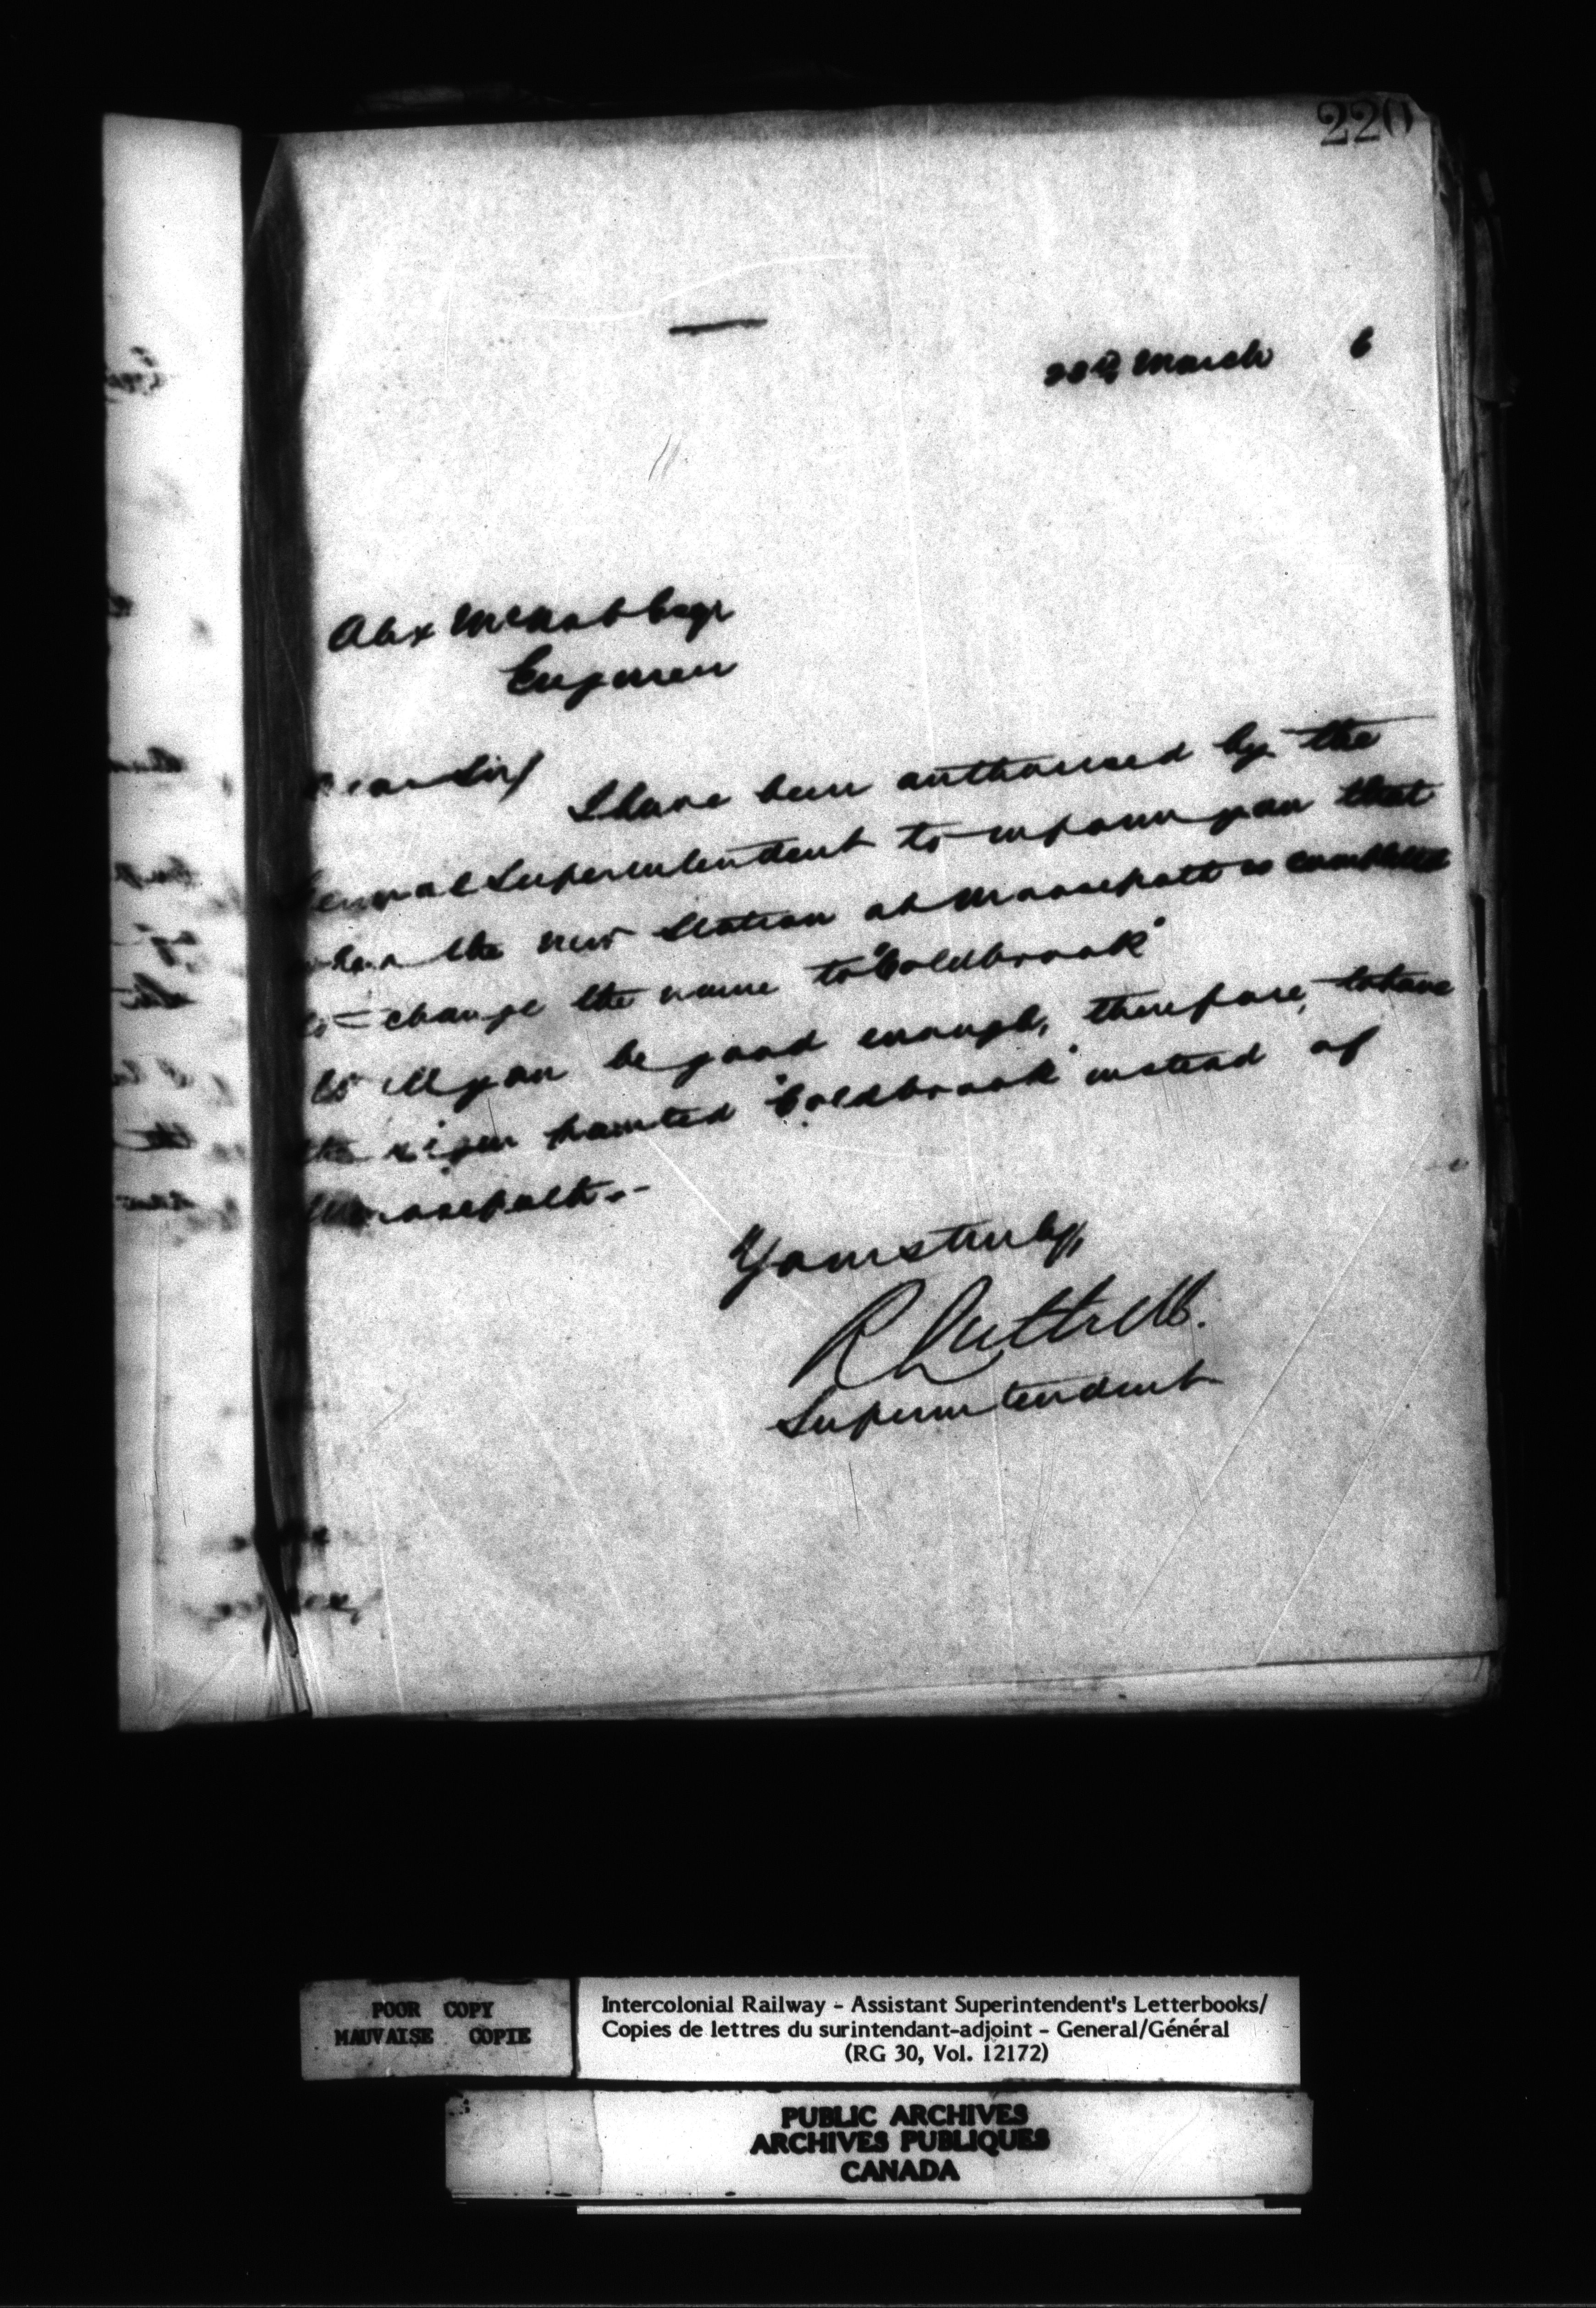 220
20th March 6
Alex McNab Esqr
Engineer
Dear Sir/
I have been authorised by the
General Superintendent to inform you that
when the new Station at Moosepath is completed
to change the name to "Coldbrook"
Will you be good enough, therefore, to have
the sign painted "Coldbrook" instead of
Moosepath.-
Yours truly,
R Luttrell.
Superintendent
POOR COPY
MAUVAISE COPIE
Intercolonial Railway - Assistant Superintendent's Letterbooks/
Copies de lettres du surintendant-adjoint - General/Général
(RG 30, Vol. 12172)
PUBLIC ARCHIVES
ARCHIVES PUBLIQUES
CANADA